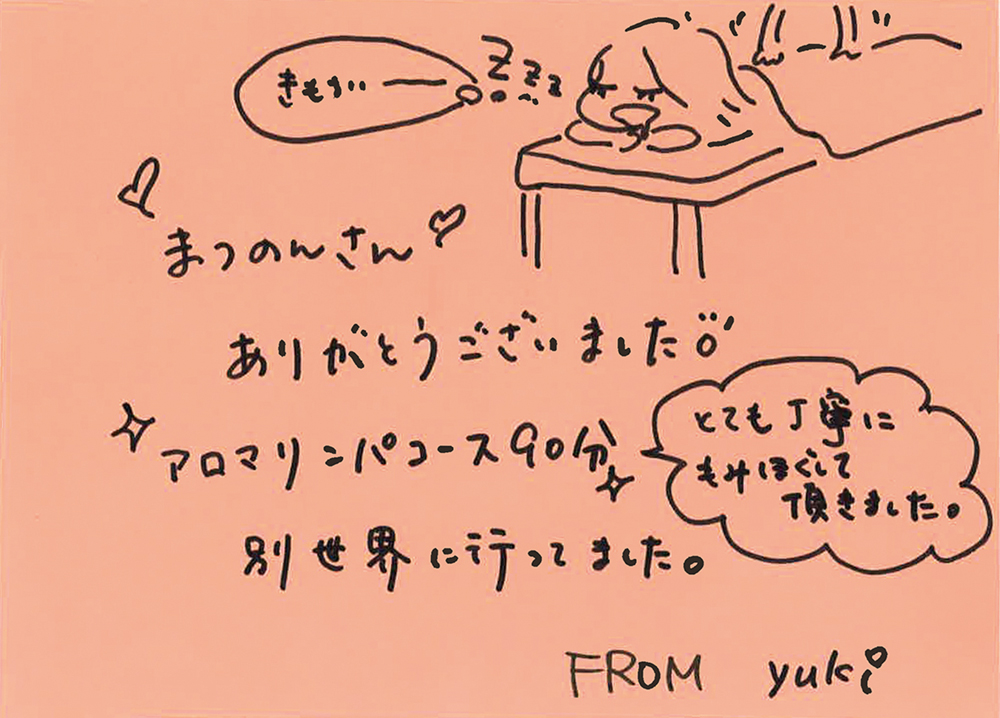 きもちぃー
Zzz
まつのんさん
ありがとうございました
アロマリンパコース90分
とても丁寧に
もみほぐして
頂きました。
別世界に行ってました。
FROM yuki